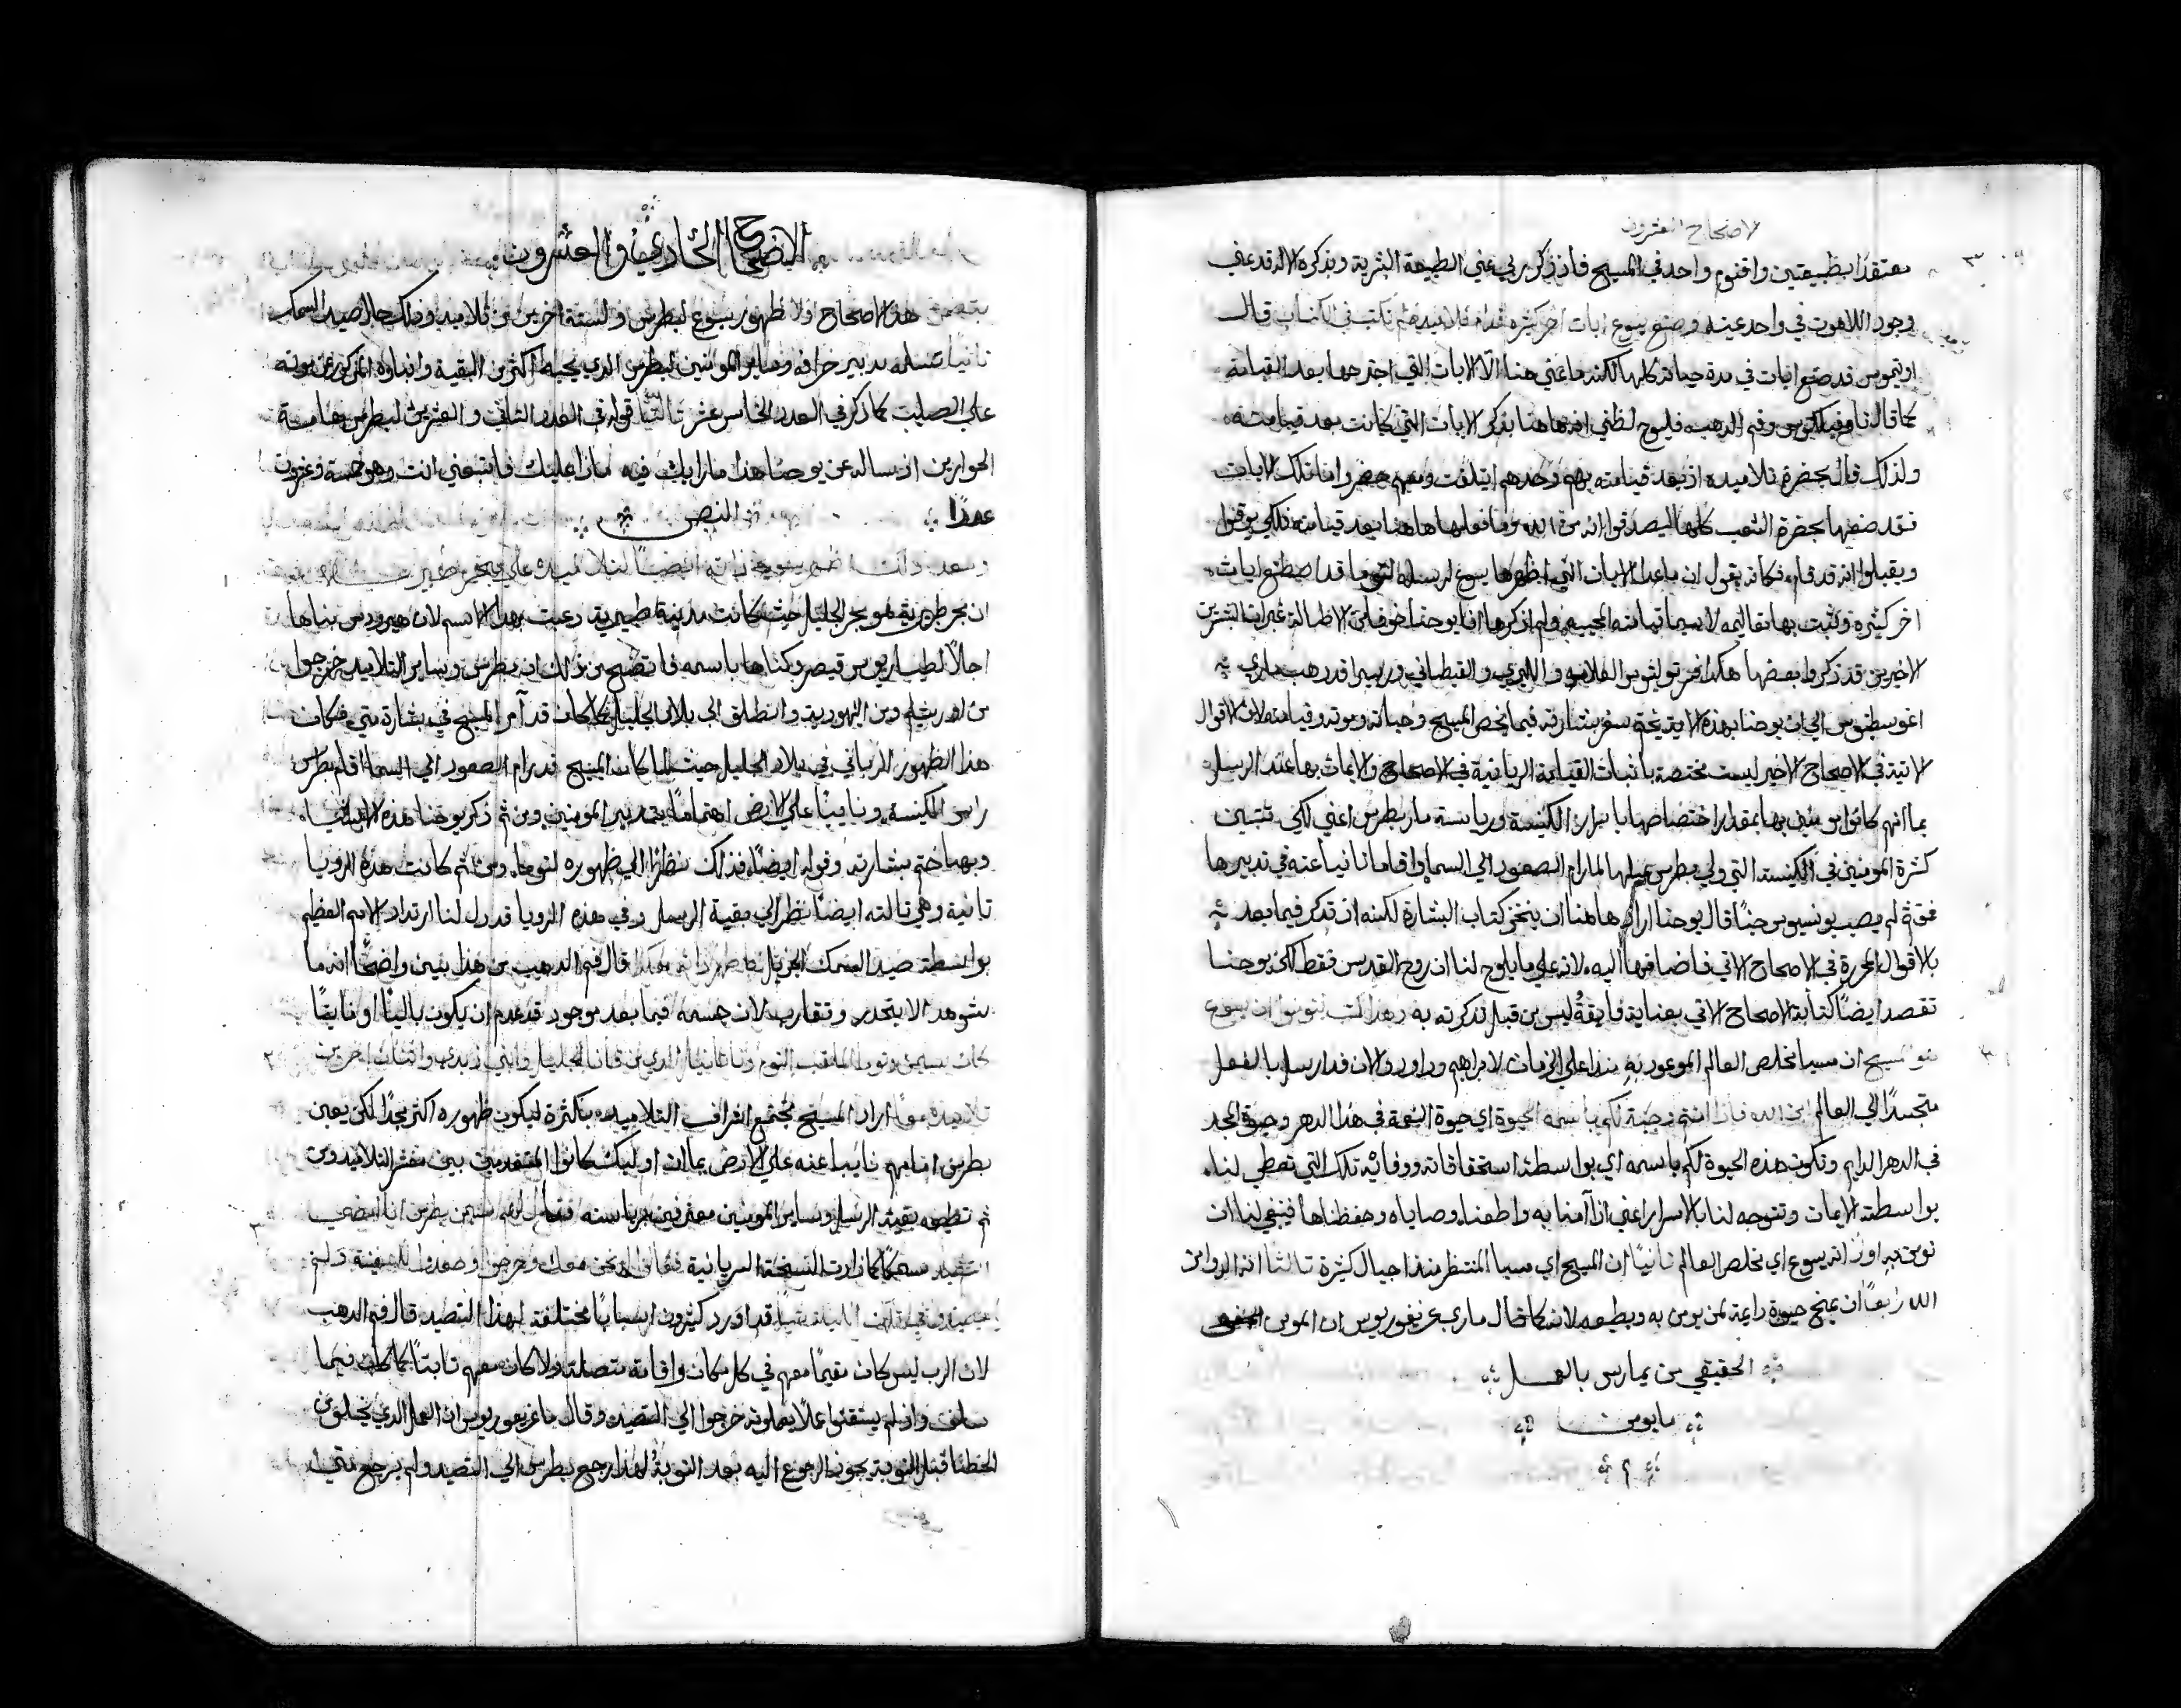 الاصحاح العشرون
معتقدًا بطبيعتين واقنوم واحد في المسيح فاذ ذكر ربي عني الطبيعة البشرية وبذكره الاله قد عني
وجود اللاهوت في واحد عينه وصنع يسوع ايات اخر كثيره قدام تلاميذه لم تكتب في الكتاب قال
اوتيموس قد صنع ايات في مدة حياته كلها لكنه ما عني هنا الا الايات التي اجترحها بعد القيامة
كما قال فم الدهب فيلوح لظني انه هاهنا يذكر الايات التي كانت بعد قيامته
ولذلك قال بحضرة تلاميده اذ بعد قيامته بهم وحدهم ايتلفت ومعهم حضر واما تلك الايات
فقد صنعها بحضرة الشعب كلها ليصدقوا انه من الله وما فعلها هاهنا بعد قيامته فلكي يوقنوا
ويقبلوا انه قد قام فكانه يقول ان ما عدا الايات التي اظهرها يسوع لرسله قد اصطنع ايات
اخر كثيرة وثبت بها تعاليمه لاسيما قيامته المجيده ولم اذكرها انا يوحنا خوفا من الاطالة غير ان المبشرين
الاخيرين قد ذكروا بعضها هكذا فسر تولیتوس العلامه و الليري والقيطاني وريبيرا قد ذهب ماري
اغوسطينوس الي ان يوحنا بهذه الاية يختم سفر بشارته فيما يخص المسيح وحياته وموته وقيامته لان الاقوال
الاتية في الاصحاح الاخير ليست مختصة باثبات القيامة الربانية في الاصحاح والايمان بها عند الرسل
بما انهم كانوا موقنين بها بمقدار اختصاصها باسرار الكنيسة ورياسة مار بطرس اعني لكي تتبين
كثرة المومنين في الكنيسة التي ولي بطرس عليها لما رام الصعود الي السما واقامه نايبا عنه في تدبيرها
قال يوحنا اراد هاهنا ان ينجز كتاب البشارة لكنه اذ تذكر فيما بعد
بالاقوال المحررة في الاصحاح الاتي فاضافها اليه لانه علي ما يلوح لنا ان روح القدس فقط لكن يوحنا
تقصد ايضًا كتابة الاصحاح الاتي بعناية فايقة ليس من قبل تذكرته به وهذا كتب لتومنوا ان يسوع
هو المسيح ان مسيا مخلص العالم الموعود به منذ اعلي الزمان لابراهيم وداود والان قد ارسل بالفعل
متجسدًا الي العالم ابن الله فاذا امنتم وجبة لكم باسمه الحيوة اي حيوة النعمة في هذا الدهر وحيوة المجد
في الدهر الدايم وتكون هذه الحيوة لكم باسمه اي بواسطة استحقاقاته ووفائه تلك التي تعطي لنا
بواسطة الايمان وتتوجه لنا بالاسرار اعني اذا آمنا به واطعنا وصاياه وحفظناها فينبغي لنا ان
نومن به اولاً انه يسوع اي مخلص العالم ثانيًا ان المسيح اي مسيا المنتظر منذ اجيال كثيرة ثالثا انه الله وابن
الله رابعًا ان يمنح حيوة دايمة لمن يومن به ويطيعه لانه كما قال ماري غريغوريوس ان المومن
الحقيقي من يمارس بالعمل
ما يومن
الاصحاح الحادي والعشرون
يتضمن هذا الاصحاح اولا ظهور يسوع لبطرس ولستة اخرين من تلاميده وذلك حال صيد السمك
ثانيا تسلمه تدبير خرافه وساير المومنين لبطرس الذي يحبه اكثر من البقية وانباوه المذكور عن موته
علي الصليب كما ذكر في العدد الخامس عشر ثالثا قوله في العدد الثاني والعشرين لبطرس هامة
الحواريين اذ ساله عن يوحنا هذا ما رايك فيه ماذا عليك فاتبعني انت وهو خمسة وعشرون
عددًا النص
وبعد ذلك اظهر يسوع ذاته ايضًا لتلاميده علي بحر طبرية
ان بحر طبرية هو بحر الجليل حيث كانت مدينة طيبرية دعيت بهذا الاسم لان هيرودس بناها
اجلالاً لطيباريوس قيصر وكناها باسمه فاتضح من ذلك ان بطرس وساير التلاميد خرجوا
من اورشليم ومن اليهودية وانطلق الي بلاد الجليل كما كان قد آمر المسيح في بشارة متي فكان
هذا الظهور الرباني في بلاد الجليل حيث لما كان المسيح قد رام الصعود الي السما اقام بطرس
راس الكنيسة ونايبًا علي الارض اهتماما بتدبير المومنين ومن ثم ذكر يوحنا هذه الاشيا
وبها ختم بشارته وقوله ايضًا فذلك نظرًا الي ظهوره لتوما ومن ثم كانت هذه الرويا
ثانية وهي ثالثه ايضًا نظرًا الي بقية الرسل وفي هذه الرويا قد دل لنا ارتداد الامم العظيم
بواسطة صيد السمك الجزيل قال فم الدهب من هذا يبين واضحًا انه ما
شوهد الا بتحدر وتقارب لان جسمه فيما بعد موجود قد عدم ان يكون باليًا او فايتًا
كان سمعن وتوما الملقب التوم وناثانيال الذي من قانا الجليل وابني زبدي واثنان اخرين
تلاميده معًا اراد المسيح مجتمع التلاميد بكثرة ليكون ظهوره اكثر مجدًا لكي يعين
بطرس امامهم نايبا عنه علي الارض بما ان اوليك كانوا المتقدمين بين معشر التلاميد ومن
ثم تطيعه بقية الرسل وساير المومنين معترفين برياسته فقال لهم سمعن بطرس انا امضي
اتصيد سمكًا كما زادت النسخة السريانية فقالوا له ونحن معك وخرجوا وصعدوا للسفينة ولم
يصيدوا في تلك الليلة شيا قد اورد كثيرون اسبابًا مختلفة لهذا التصيد قال فم الدهب
لان الرب ليس كان مقيمًا معهم في كل مكان واقامة متصلة ولا كان معهم ثابتًا كما كان فيما
سلف واذ لم يستقنوا عملا يعملونه خرجوا الي التصيد وقال ماغريغوريوس ان العمل الذي يخلو من
الخطا قبل التوبة يجوز الرجوع اليه بعد التوبة لهذا رجع بطرس الي التصيد ولم يرجع متي